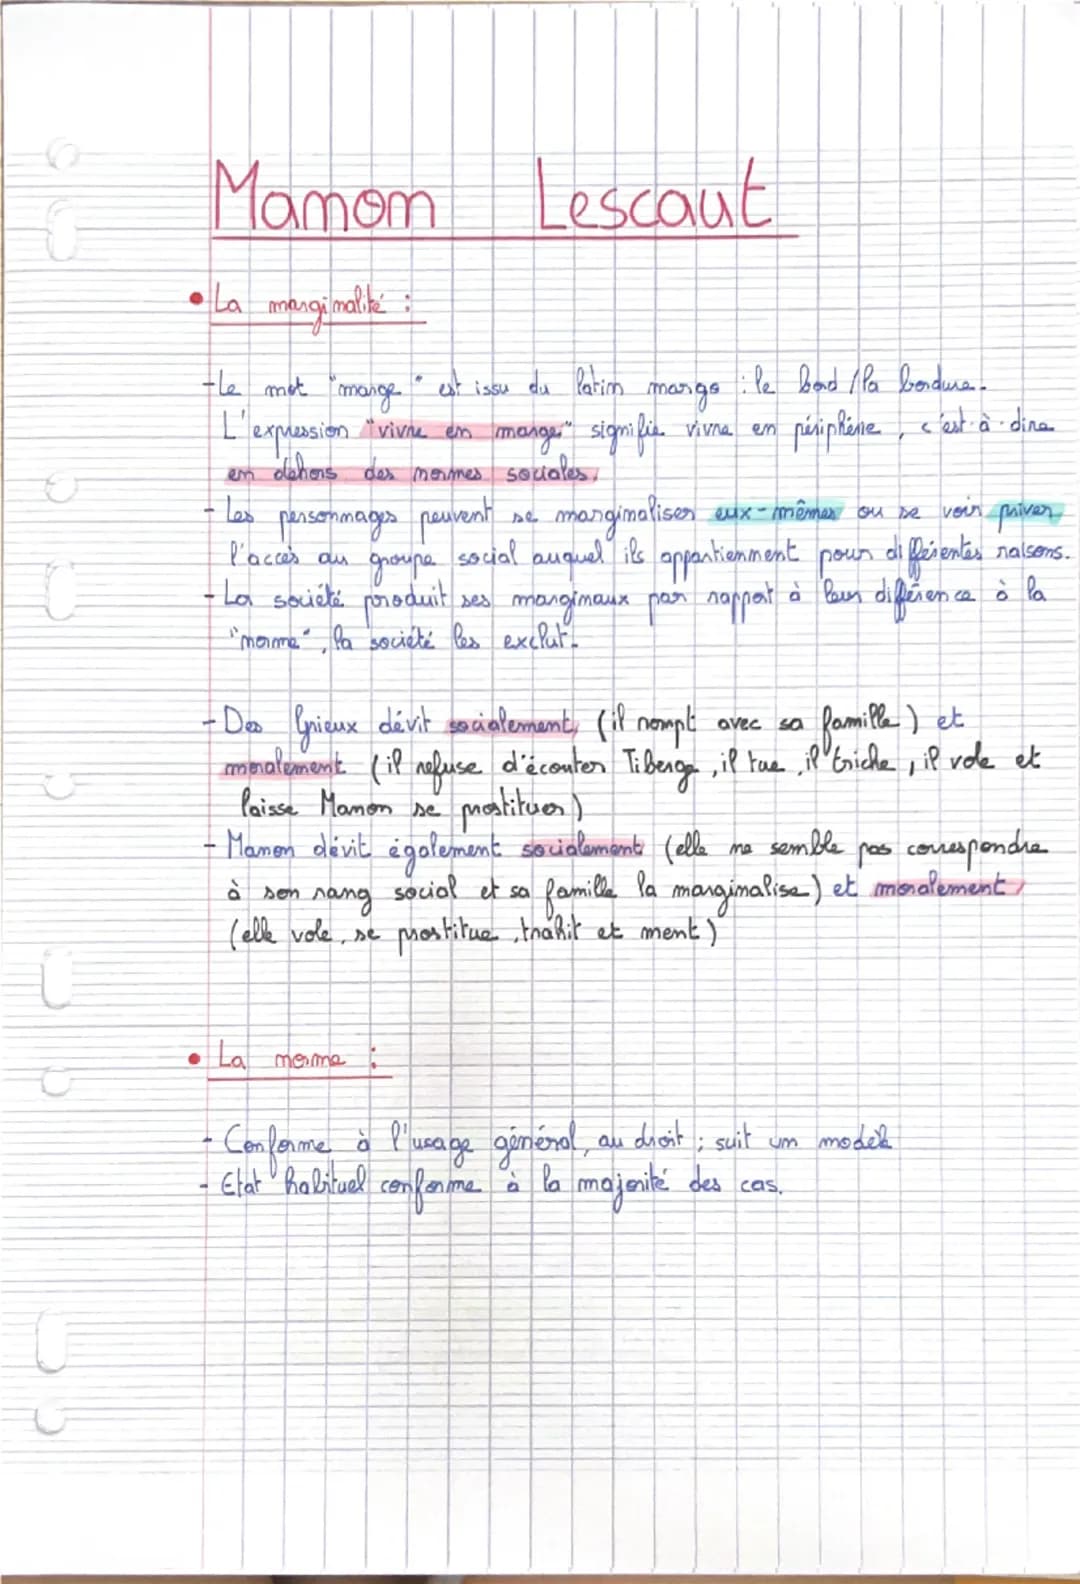 Manon Lescaut
• La marginalité :
- Le mot "marge" est issu du latin margo : le bord / la bordure.
L'expression "vivre en marge" signifie vivre en périphérie, c'est-à-dire
en dehors des normes sociales.
- Les personnages peuvent se marginaliser eux-mêmes ou se voir priver
l'accès au groupe social auquel ils appartiennent pour différentes raisons.
- La société produit ses marginaux par rapport à leur différence à la
"norme", la société les exclut.
- Des Grieux dévit socialement, (il rompt avec sa famille) et
moralement (il refuse d'écouter Tiberge, il tue, il triche, il vole et
laisse Manon se prostituer)
- Manon dévit également socialement (elle ne semble pas correspondre
à son rang social et sa famille la marginalise) et moralement
(elle vole, se prostitue, trahit et ment)
• La norme :
- Conforme à l'usage général, au droit ; suit un modèle
- Etat habituel conforme à la majorité des cas.